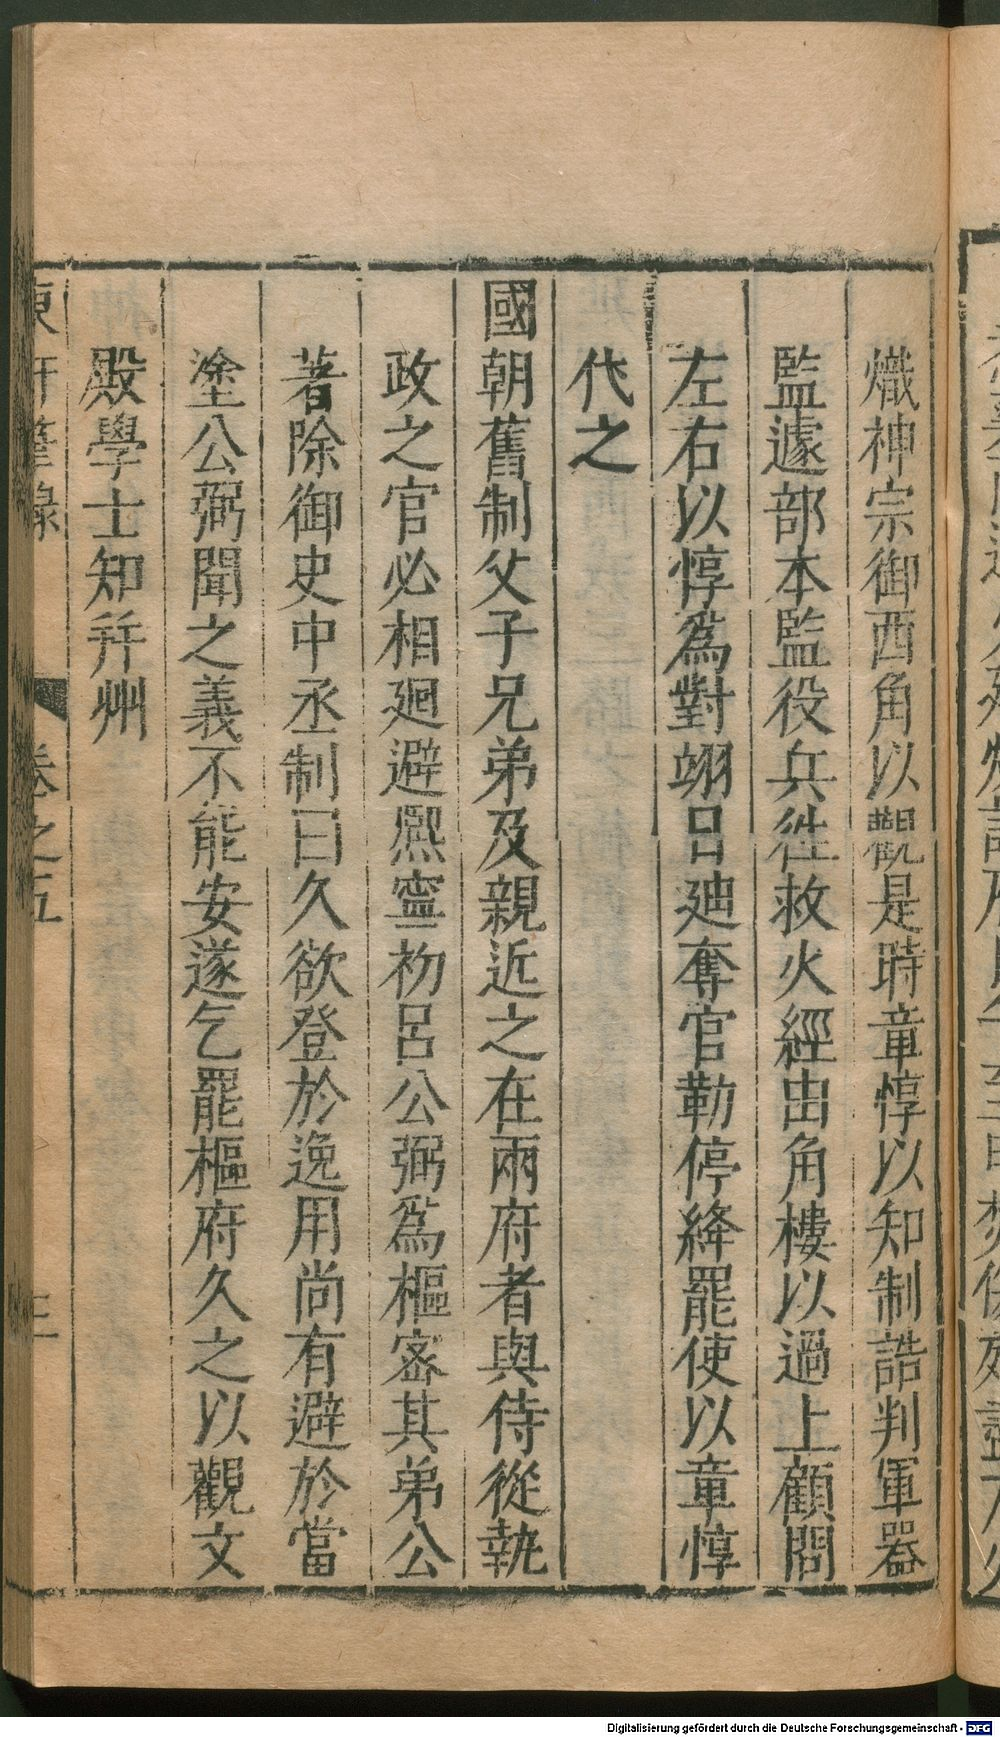 熾神宗御西角以觀是時章惇以知制誥判軍器
監遽部本監役兵徃救火經由角樓以過上顧問
左右以惇爲對翊日廸奪官勒停絳罷使以章惇
代之
國朝舊制父子兄弟及親近之在兩府者與侍從執
政之官必相廻避熈寧初呂公弼爲樞密其弟公
著除御史中丞制曰久欲登於逸用尚有避於當
塗公弼聞之義不能安遂乞罷樞府久之以觀文
殿學士知幷州
東軒筆錄 卷之五 三
Digitalisierung gefördert durch die Deutsche Forschungsgemeinschaft - DFG